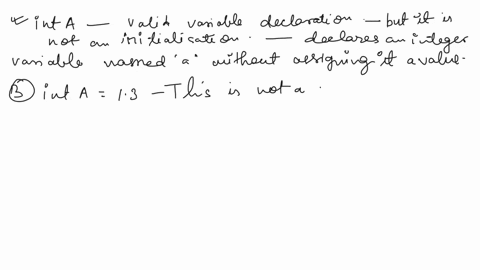 ✓ int A — valid variable declaration — but it is
not an initialisation. — declares an integer
variable named 'a' without assigning it a value.
Ⓑ int A = 1.3 — This is not a .